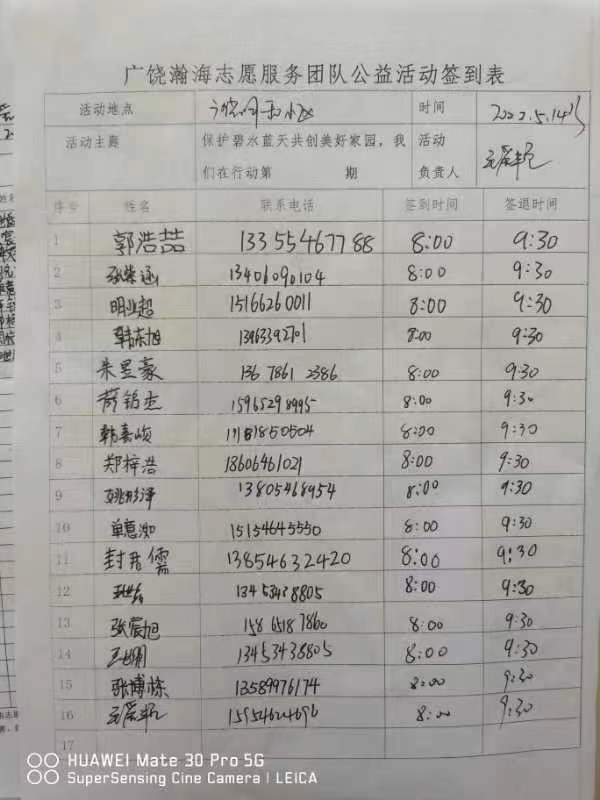 广饶瀚海志愿服务团队公益活动签到表
活动地点 时间 2022.5.14
活动主题 保护碧水蓝天共创美好家园，我们在行动第 期 活动负责人
序号 姓名 联系电话 签到时间 签退时间
1 郭浩喆 13355467788 8:00 9:30
2 张荣涵 13406090104 8:00 9:30
3 明业超 15166260011 8:00 9:30
4 韩东旭 13963392701 8:00 9:30
5 朱昱豪 136 7861 2386 8:00 9:30
6 15965298995 8:00 9:30
7 韩嘉峻 8:00 9:30
8 郑梓浩 18606461021 8:00 9:30
9 姚彤泽 13805468954 8:00 9:30
10 单意洳 15154645550 8:00 9:30
11 封君儒 13854632420 8:00 9:30
12 134 53438805 8:00 9:30
13 张宸旭 158 6518 7860 8:00 9:30
14 13453438805 8:00 9:30
15 张博栋 13589976174 8:00 9:30
16 8:00 9:30
17
HUAWEI Mate 30 Pro 5G
SuperSensing Cine Camera | LEICA